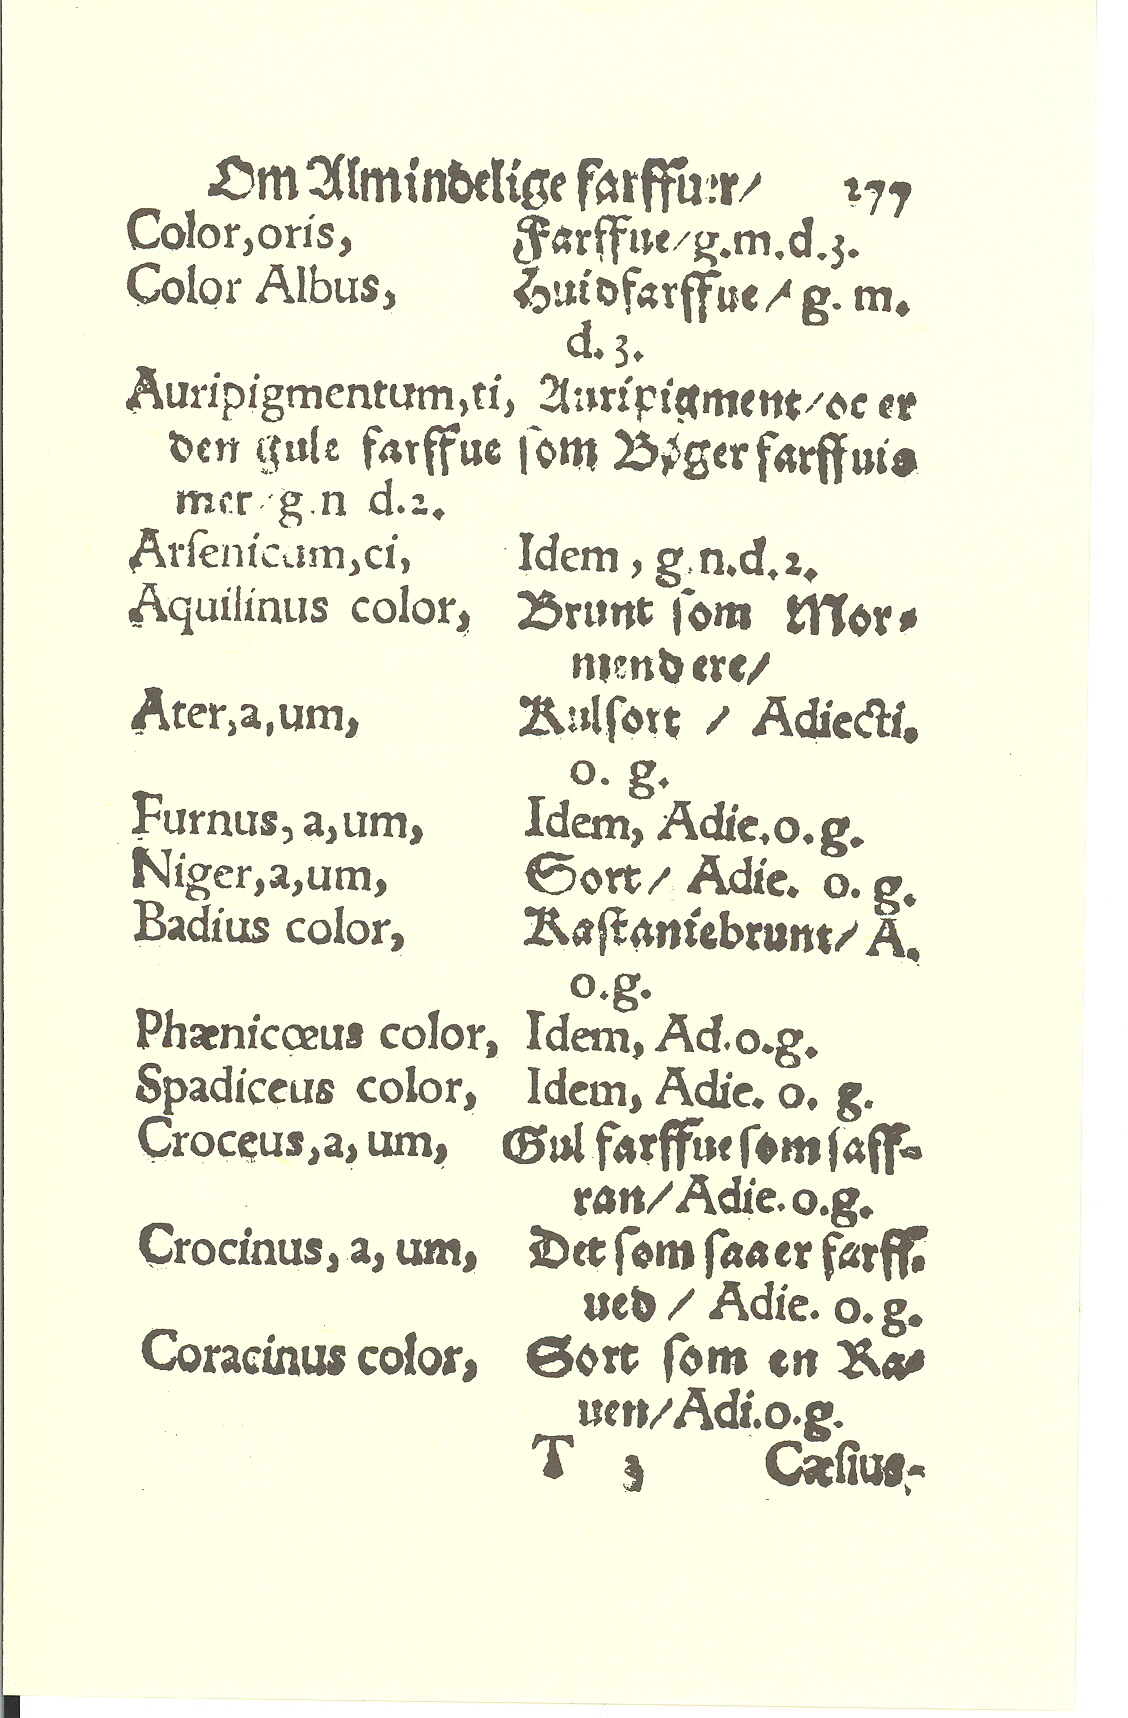 Om Almindelige farffuer/ 277
Color,oris, Farffue/g.m.d.3.
Color Albus, Huidfarffue/ g. m.
d. 3.
Auripigmentum,ti, Auripigment/oc er
den gule farffue som Bøger farffuis
mer/g.n d.2.
Arſenicum,ci, Idem , g.n.d.2.
Aquilinus color, Brunt ſom Mor-
mend ere/
Ater,a,um, Kulſort / Adiecti.
o. g.
Furnus, a,um, Idem, Adie.o.g.
Niger,a,um, Sort/ Adie. o. g.
Badius color, Kaſtaniebrunt/ A.
o.g.
Phænicœus color, Idem, Ad.o.g.
Spadiceus color, Idem, Adie. o. g.
Croceus,a, um, Gul farffue ſom ſaff-
ran/Adie.o.g.
Crocinus, a, um, Det ſom ſaa er farff-
ued / Adie. o. g.
Coracinus color, Sort ſom en Ra-
uen/Adi.o.g.
T 3 Cæſius-